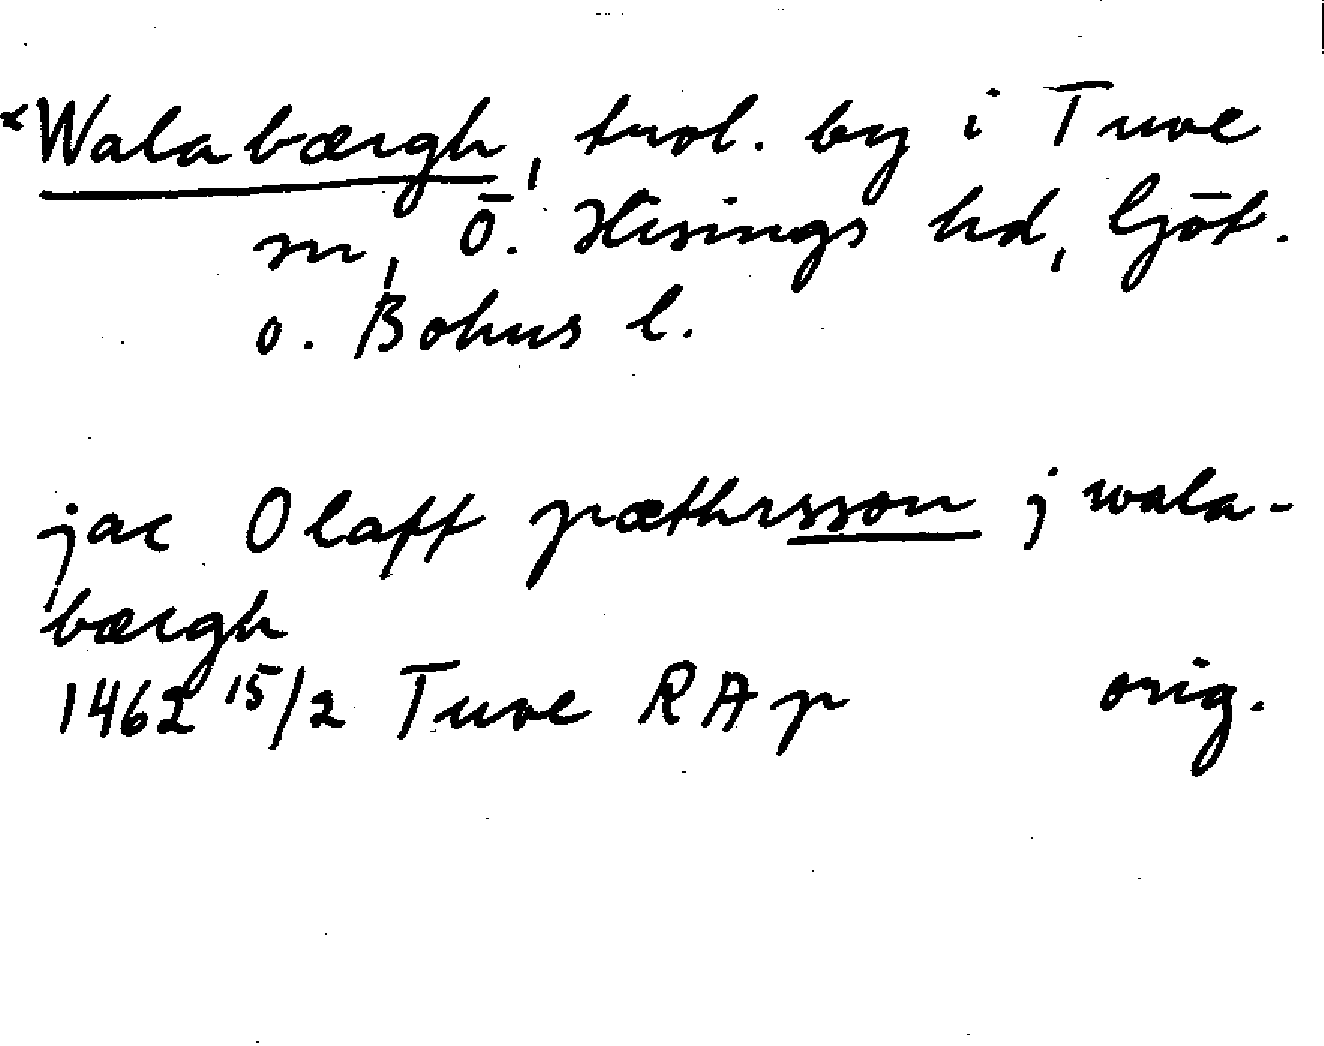 *Walabærgh, trol. by i Tuve
sn, Ö. Hisings hd, Göt.
o. Bohus l.
jac Olaff pæthersson j wala-
bærgh
1462 15/2 Tuve RAp orig.